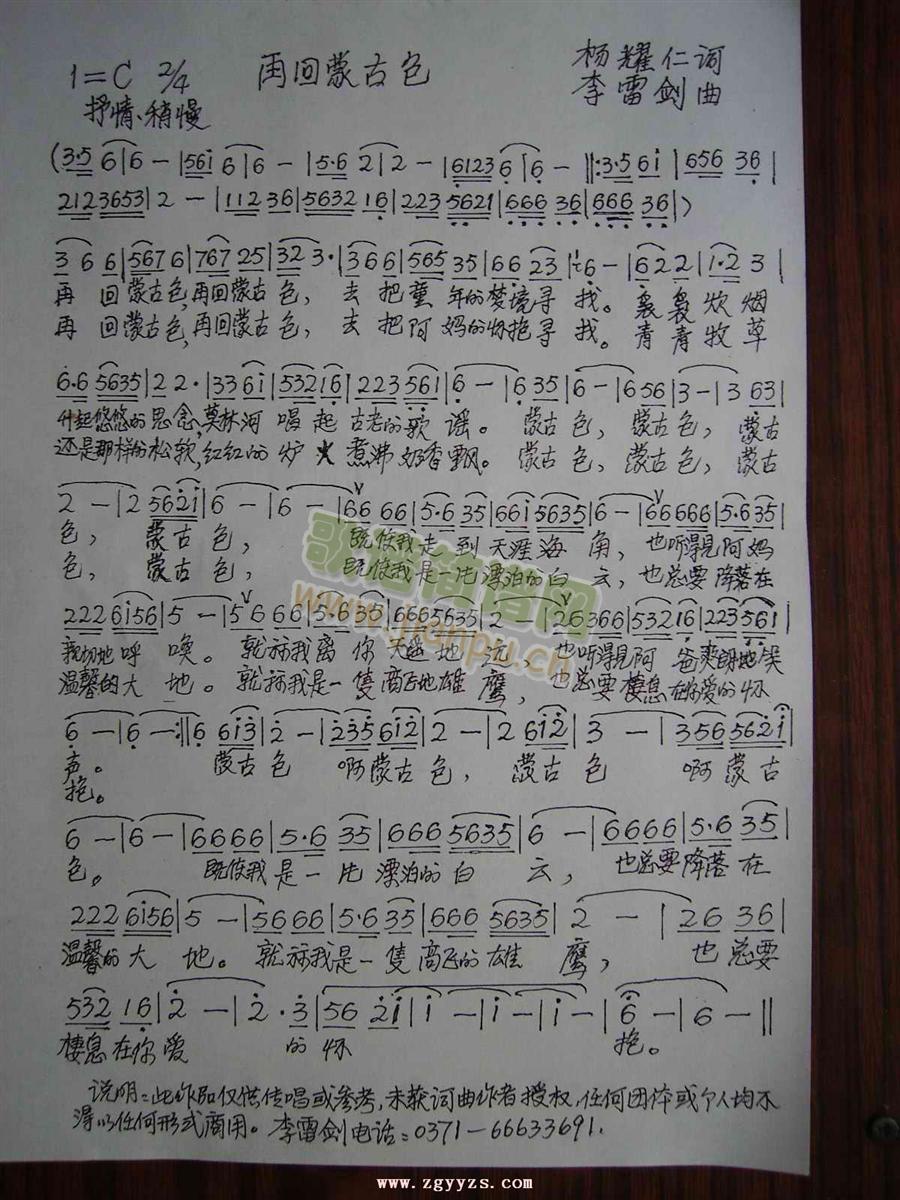 再回蒙古包
1=C 2/4
杨耀仁词
李雷剑曲
抒情、稍慢
(3·5 6|6 - |561 6|6 - |5·6 2|2 - |6123 6|6 - ‖:3·5 61 |656 36|
2123653|2 - |112 36|5632 16|223 5621|666 36|666 36|)
3 6 6|567 6|767 25|32 3·|3 66|565 35|66 23|6 - |6 2 2|1·2 3|
再 回蒙古包,再回蒙古 包, 去 把童 年的梦境寻 找。袅 袅 炊 烟
再 回蒙古包,再回蒙古 包, 去 把阿 妈的怀抱寻 找。青 青 牧 草
6·6 5635|2 2·|33 61|532 16|223 561|6 - |6 35|6 - |6 56|3 - |3 63|
升起悠悠的思念,莫林河 唱 起 古老的歌 谣。 蒙古 包, 蒙古 包, 蒙古
还是那样的松软,红红的 炉 火 煮沸 奶香飘。 蒙古 包, 蒙古 包, 蒙古
2 - |2 5621|6 - |6 - |66 66|5·6 35|661 5635|6 - |66 666|5·6 35|
包, 蒙古包, 既使我走 到 天涯海 角, 也听得见阿妈
包, 蒙古包, 既使我是一片漂泊的白 云, 也总要降落在
222 6156|5 - |5 6 66|5·6 35|666 5635|2 - |26 366|532 16|223 561|
亲切地呼 唤。 就祘我离 你 天遥 地 远, 也听得见阿 爸爽朗地笑
温馨的大 地。 就祘我是一隻高飞地雄 鹰, 也总要棲息在你爱的怀
6 - |6 - :‖6 613|2 - |235 612|2 - |2 612|3 - |356 5621|
声。 蒙古包 啊蒙古包, 蒙古包 啊蒙古
抱。
6 - |6 - |6666|5·6 35|666 5635|6 - |6666|5·6 35|
包。 既使我是一片漂泊的白 云, 也总要降落在
222 6156|5 - |5666|5·6 35|666 5635|2 - |26 36|
温馨的大 地。 就祘我是一隻高飞的雄 鹰, 也总要
532 16|2 - |2·3|56 21|1 - |1 - |1 - |6 - |6 - ‖
棲息在你爱 的怀 抱。
说明:此作品仅供传唱或参考,未获词曲作者授权,任何团体或个人均不
得以任何形式商用。李雷剑电话:0371-66633691.
歌谱简谱网
www.jianpu.cn
www.zgyyzs.com